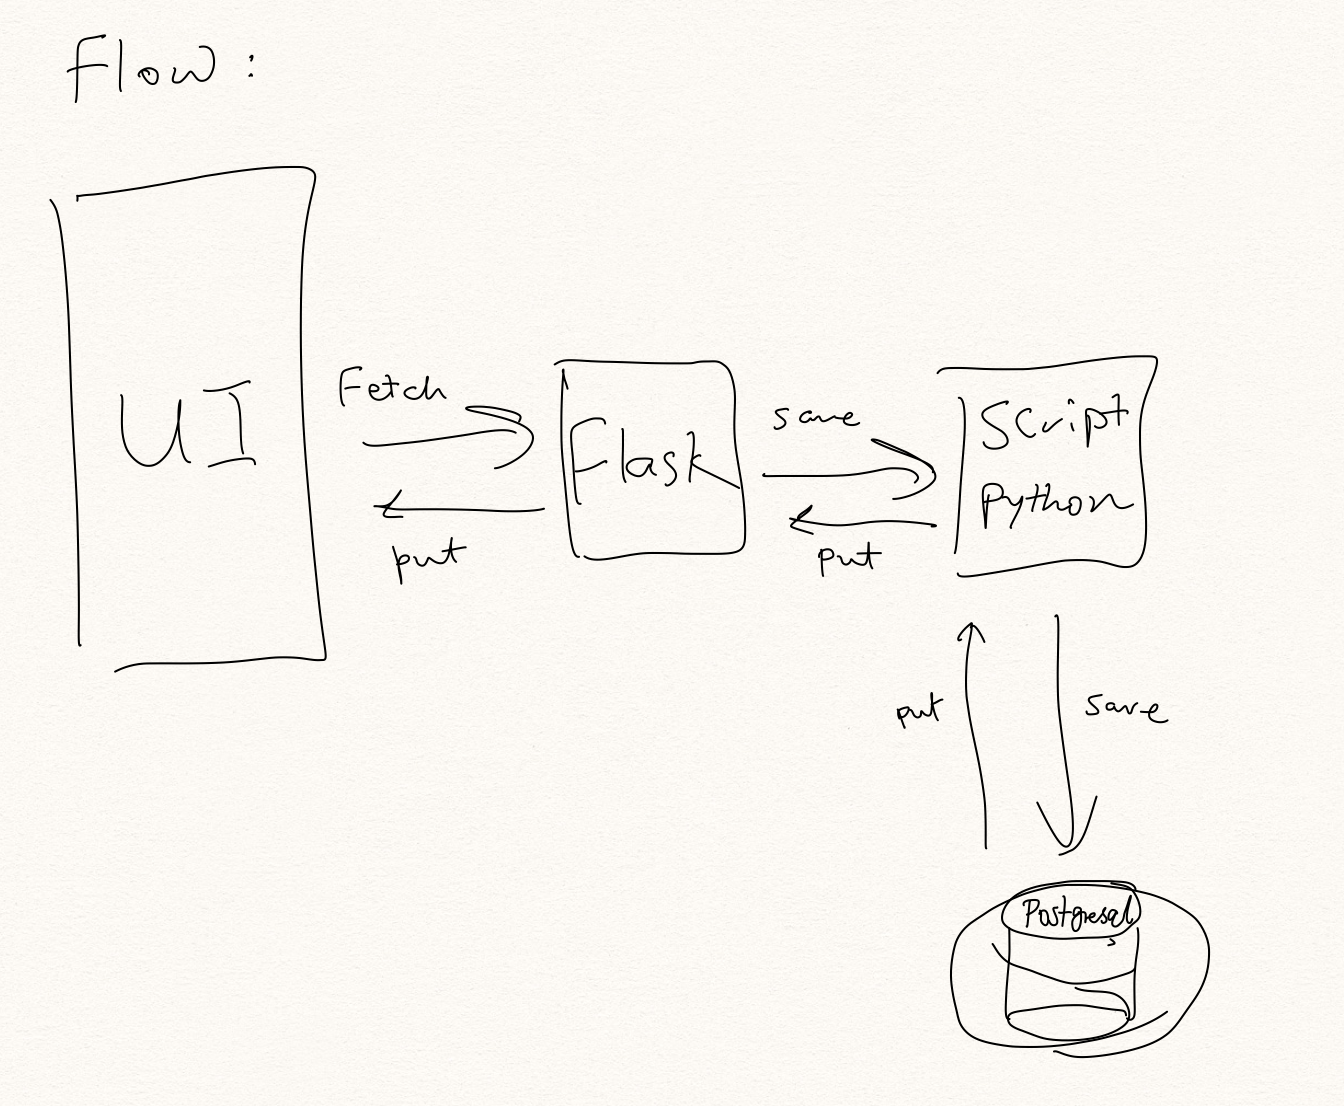 Flow :
UI
Fetch
put
Flask
save
put
Script
Python
put
save
Postgresql